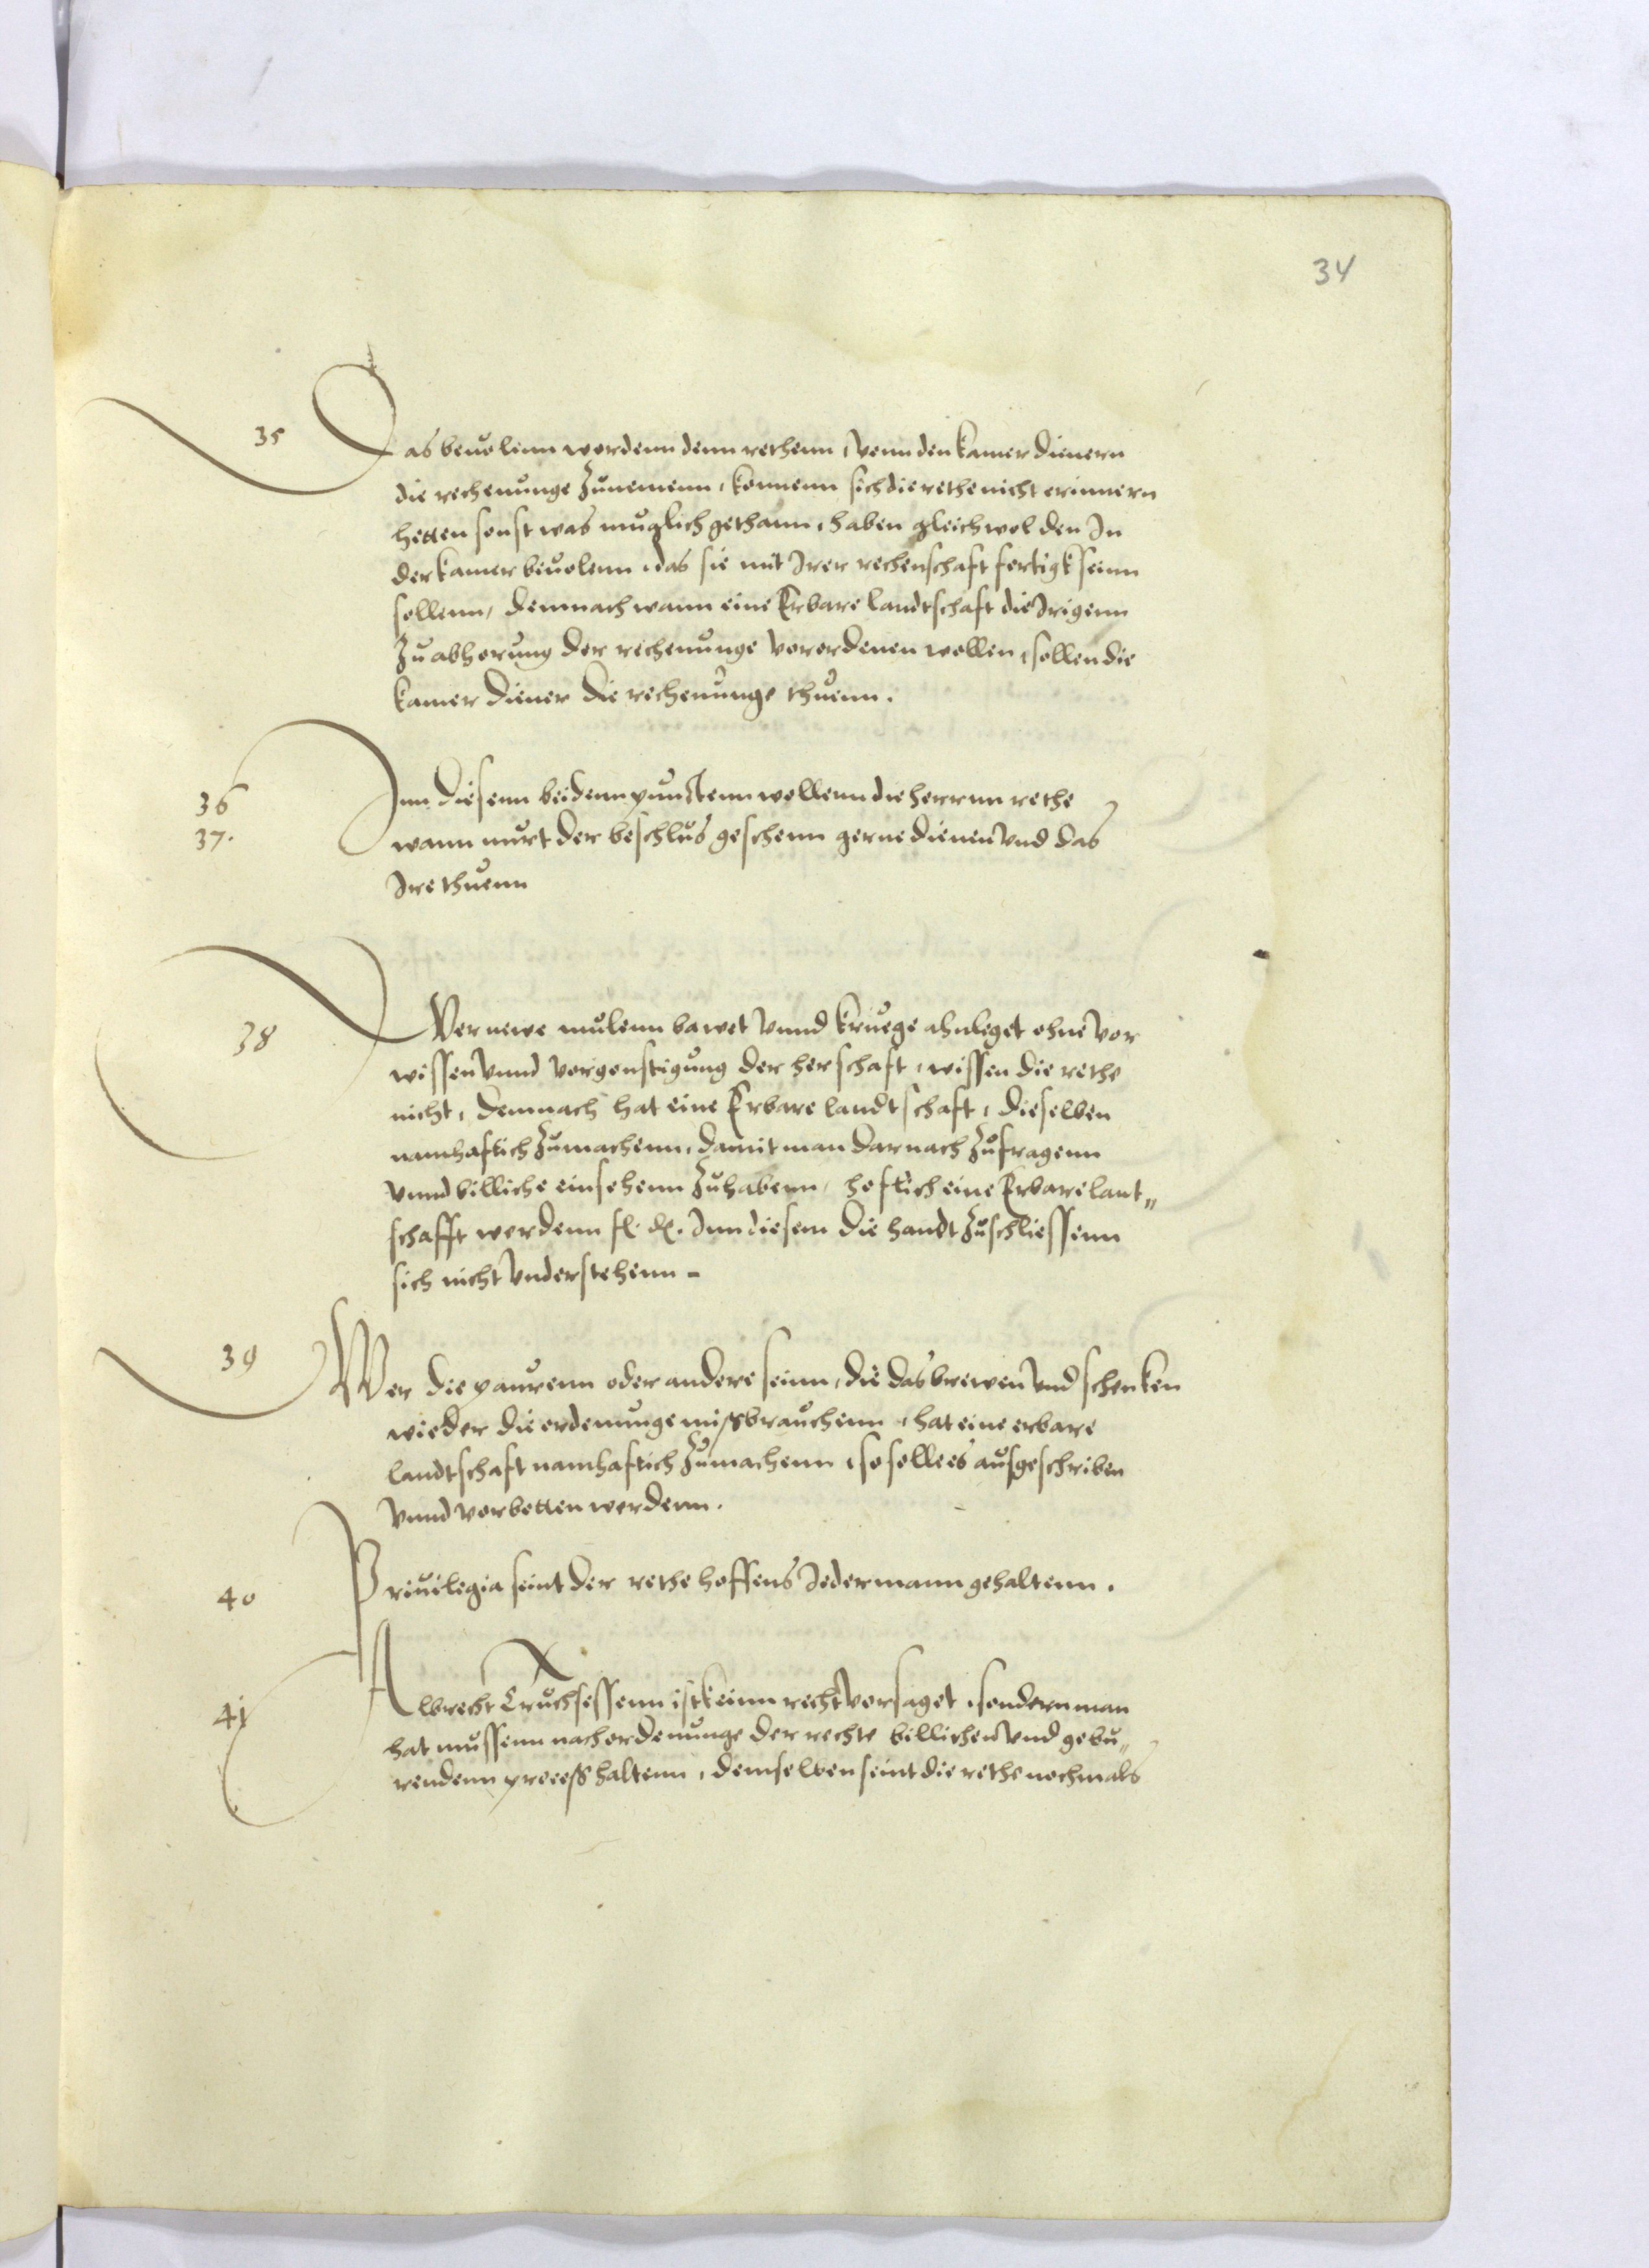 34
35 Das beuolenn wordenn denn rethenn, vonn den kamer dienern
die rechenunge zunemenn, konnenn sich die rethe nicht erinnern
hetten sonst was muglich gethann, haben gleichwol den In
der kamer beuolenn, das sie mit Irer rechenschaft fertigk seinn
sollenn, demnach wann eine Erbare landtschaft die Irigenn
zu abhorung der rechenunge vorordenen wollen, sollen die
kamer diener die rechenunge thuenn.
36 Inn diesenn beidenn punctenn wollenn die herrnn rethe
37. wann nurt der beschlus geschenn gerne dienen vnd das
Ire thuenn
38 Wer newe mulenn bawet vnnd kruege ahnleget ohne vor
wissen vnnd vorgonstigung der herschaft, wissen die rethe
nicht, demnach hat eine Erbare landtschaft, dieselben
namhaftich zumachenn, damit man darnach zufragenn
vnnd billiche einsehenn zuhabenn, hoflich eine Erbare lant„
schafft werdenn fl. dt. Inn diesem die handt zuschliessenn
sich nicht vnderstehenn -
39 Wer die paurenn oder andere seinn, die das brewen vnd schenken
wieder die ordenunge mißbrauchenn, hat eine erbare
landtschaft namhaftich zumachenn, so solle es ausgeschriben
vnnd vorbotten werdenn.
40 Priuilegia seint der rethe hoffens Jedermann gehaltenn.
41 Albrecht Truchsessenn ist keinn recht vorsaget, sondern man
hat mussenn nach ordenunge der rechte billichen vnd gebu„
rendenn proceß haltenn, demselben seint die rethe nochmals